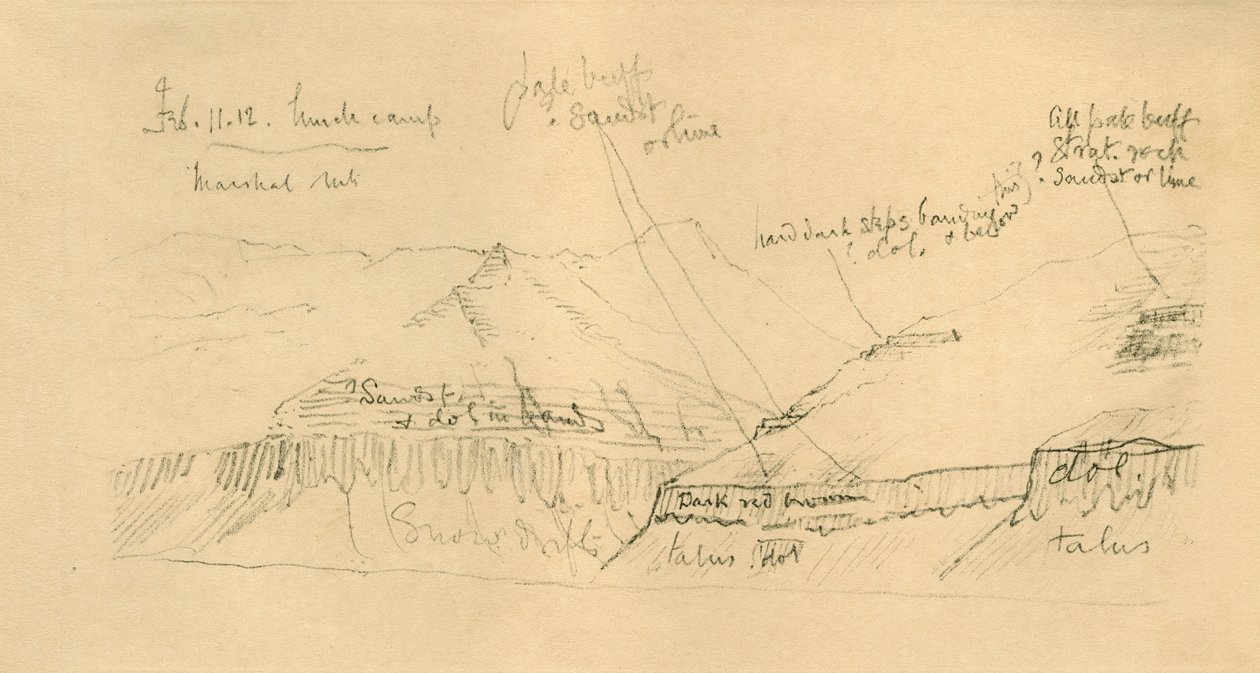 Feb. 11. 12. Lunch camp
Marshal Mts
pale buff
? Sandst
or lime
All pale buff
? Strat. rock
? Sandst or lime
hard dark steps banding this
? dol. & below
? Sandst
& dol in bands
Snow drifts
Dark red brown
talus ? dol
dol
talus